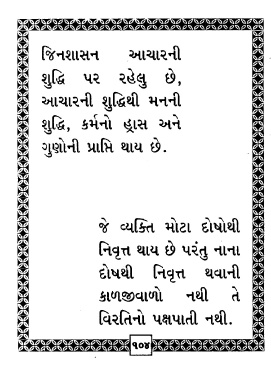 જિનશાસન આચારની
શુદ્ધિ પર રહેલુ છે,
આચારની શુદ્ધિથી મનની
શુદ્ધિ, કર્મનો હ્રાસ અને
ગુણોની પ્રાપ્તિ થાય છે.
જે વ્યક્તિ મોટા દોષોથી
નિવૃત્ત થાય છે પરંતુ નાના
દોષથી નિવૃત્ત થવાની
કાળજીવાળો નથી તે
વિરતિનો પક્ષપાતી નથી.
૧૦૪